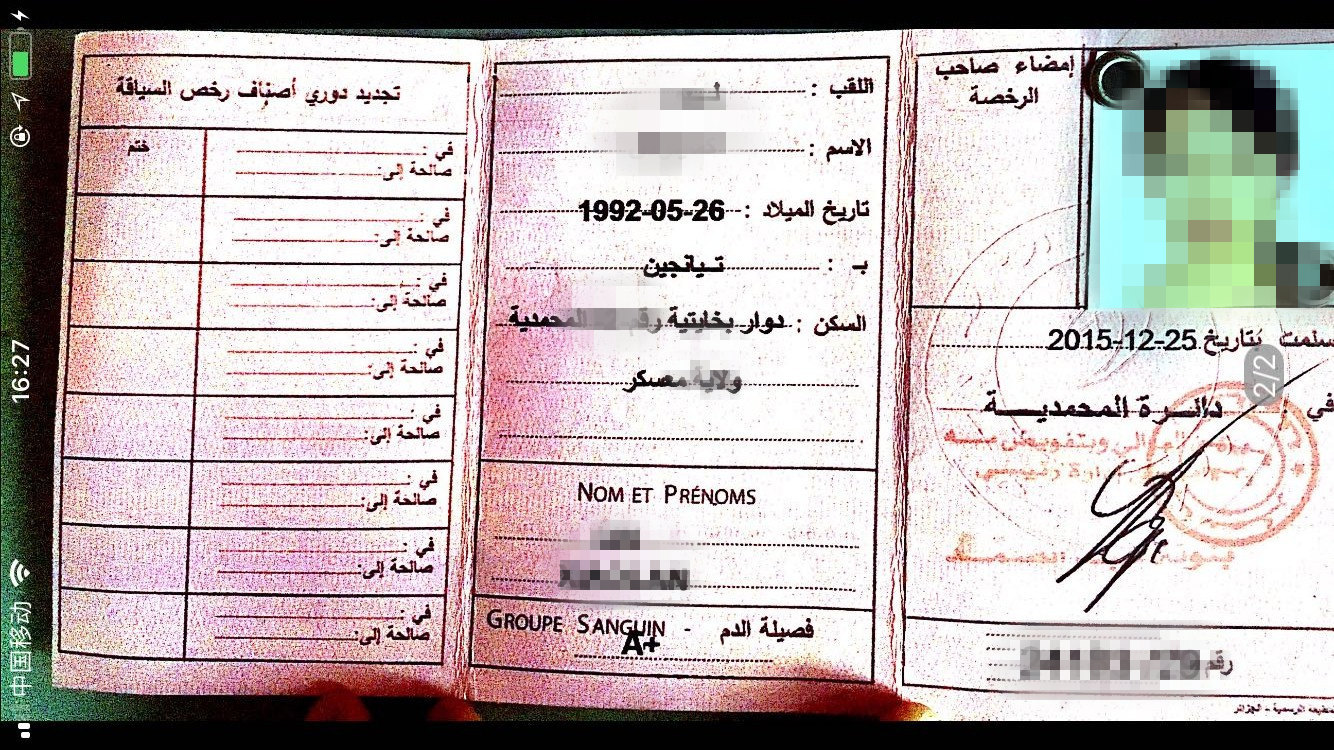 إمضاء صاحب
الرخصة
سلمت بتاريخ 25-12-2015
في : دائرة المحمديـــــة
رقم
اللقب :
الاسم :
تاريخ الميلاد : 26-05-1992
بـ : تـيانجين
السكن : دوار بخايتية رقم المحمدية
ولاية معسكر
NOM ET PRÉNOMS
GROUPE SANGUIN - فصيلة الدم
A+
تجديد دوري أصناف رخص السياقة
ختم
في :
صالحة إلى:
في :
صالحة إلى:
في :
صالحة إلى:
في :
صالحة إلى:
في :
صالحة إلى:
في :
صالحة إلى:
في :
صالحة إلى:
في :
صالحة إلى:
中国移动
16:27
2/2